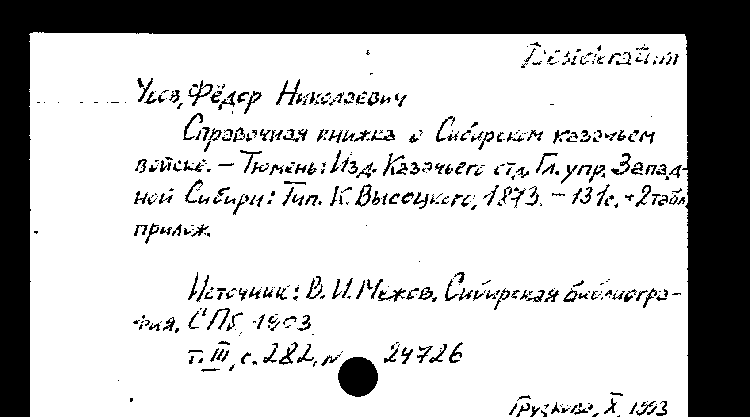 Desideratum
Усов, Фёдор Николаевич
Справочная книжка о Сибирском казачьем
войске. – Тюмень: Изд. Казачьего отд. Гл. упр. Запад-
ной Сибири: Тип. К. Высоцкого, 1873. – 131с. + 2 табл.
прилож.
Источник: В. И. Межов. Сибирская библиогра-
фия. СПб, 1903
т. III, с. 282, № 24726
X, 1993